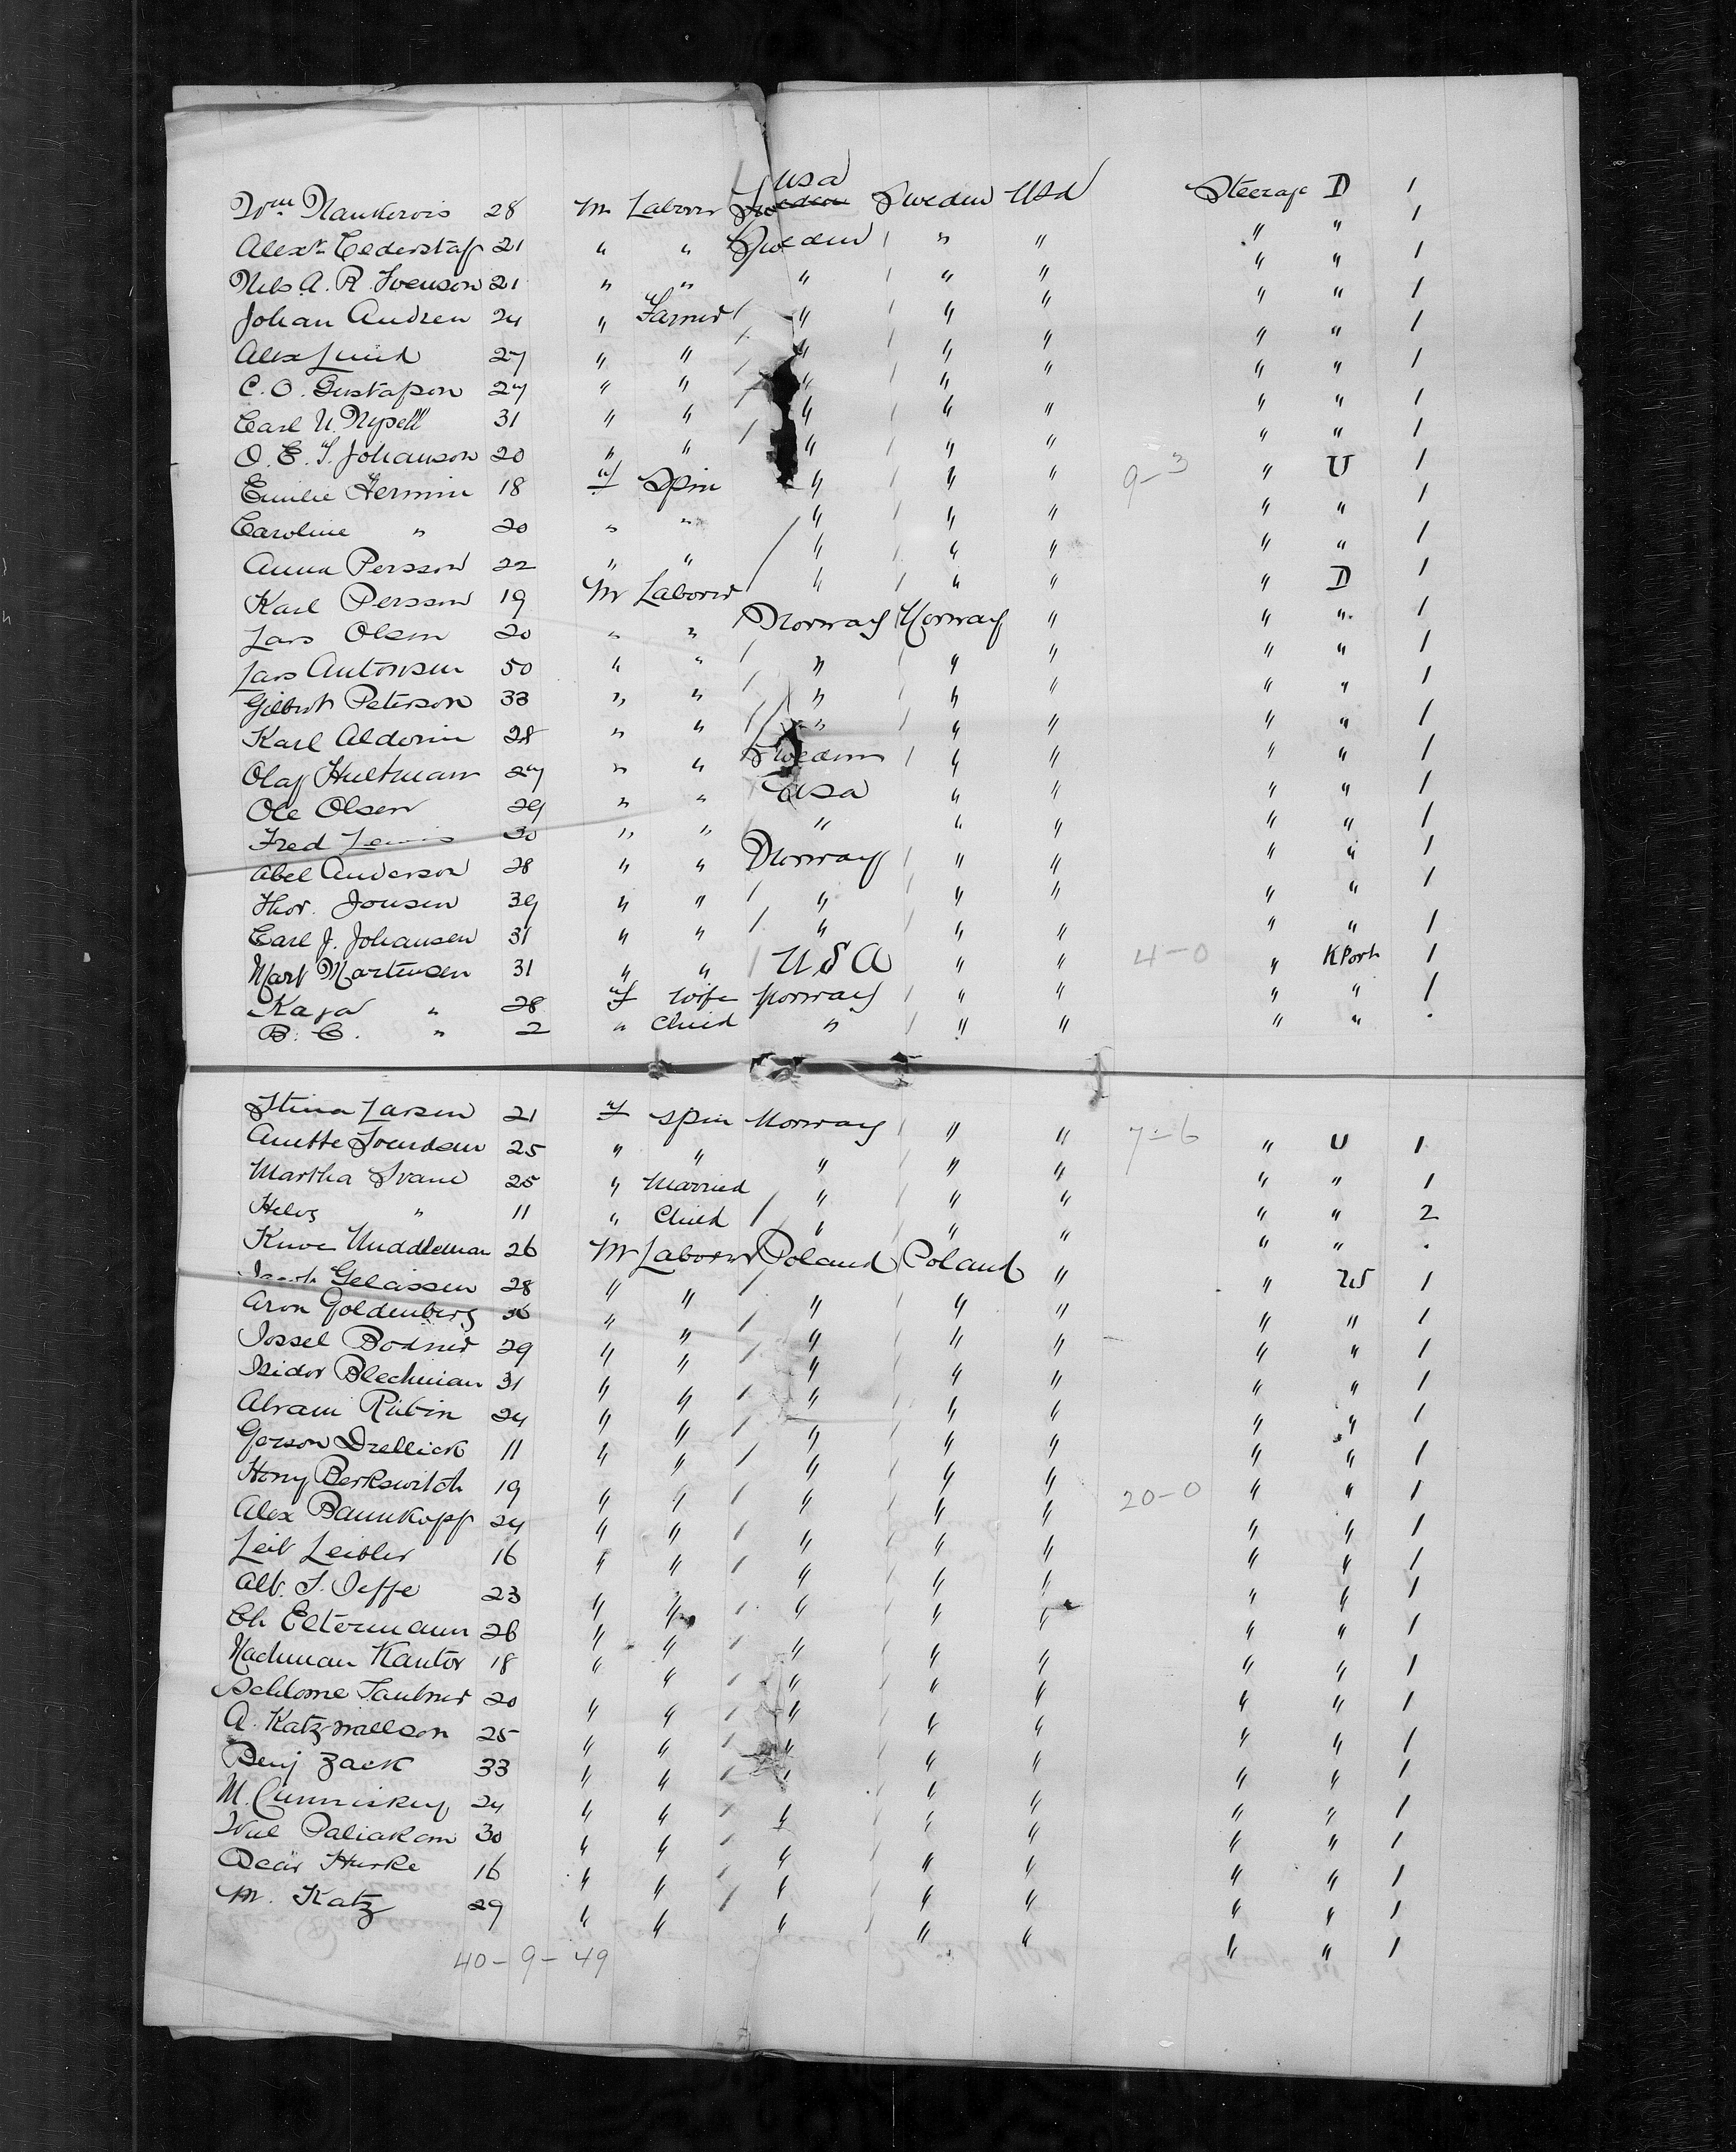 Wm Nankervis 28 m Laborer USA Sweden Sweden USA Steerage D 1
Alexr Cederstaf 21 " " Sweden / " " " " 1
Nels A. R. Svenson 21 " " " / " " " " 1
Johan Andren 24 " Farmer / " / " " " " 1
Alex Lund 27 " " / " / " " " " 1
C. O. Gustafson 27 " " / " / " " " " 1
Carl U. Nypell 31 " " / " / " " " " 1
O. E. T. Johanson 20 " " / " / " " " " 1
Emilie Hermin 18 f Spin " / " " 9-3 " U 1
Caroline " 20 " " " / " " " " 1
Anna Persson 22 " " / " / " " " " 1
Karl Persson 19 m Laborer " / " " " D 1
Lars Olsen 20 " " Norway Norway " " " 1
Lars Antonsen 50 " " / " / " " " " 1
Gilbert Peterson 33 " " / " / " " " " 1
Karl Alderin 28 " " / " / " " " " 1
Olaf Hultman 27 " " Sweden / " " " " 1
Ole Olsen 29 " " USA " " " " 1
Fred Lewis 30 " " " " " " " 1
Abel Anderson 28 " " Norway / " " " " 1
Thor. Jonsen 39 " " / " / " " " " 1
Carl J. Johansen 31 " " / " / " " " " 1
Mart Martensen 31 " " / USA " " 4-0 " K Port 1
Kaja " 28 f wife Norway / " " " " 1
B. C. " 2 " Child " / " " " " .
Stina Larsen 21 f spin Norway / " " 7-6 " U 1
Anette Svendsen 25 " " " / " " " " 1
Martha Svane 25 " Married " / " " " " 2
Helvg " 11 " Child / " / " " " " .
26 m Laborer Poland Poland " " W 1
Gelassen 28 " " / " / " " " " 1
Aron Goldenberg 36 " " / " / " " " " 1
Jossel Bodner 29 " " / " / " " " " 1
Isidor Blechman 31 " " / " / " " " " 1
Abram Rubin 24 " " / " / " " " " 1
Gerson Drellick 11 " " / " / " " " " 1
Hony Berkowitch 19 " " / " / " " 20-0 " " 1
Alex Baumkopf 24 " " / " / " " " " 1
Leib Leibler 16 " " / " / " " " " 1
Alb. S. Jeffe 23 " " / " / " " " " 1
Ch Eltermann 26 " " / " / " " " " 1
Nachman Kantor 18 " " / " / " " " " 1
Schlome Taubner 20 " " / " / " " " " 1
A. Katznallson 25 " " / " / " " " " 1
Benj Zack 33 " " / " / " " " " 1
M. Cumiskey 24 " " / " / " " " " 1
Paliakom 30 " " / " / " " " " 1
Oscar Hurke 16 " " / " / " " " " 1
M. Katz 29 " " " / " " " " 1
40-9-49